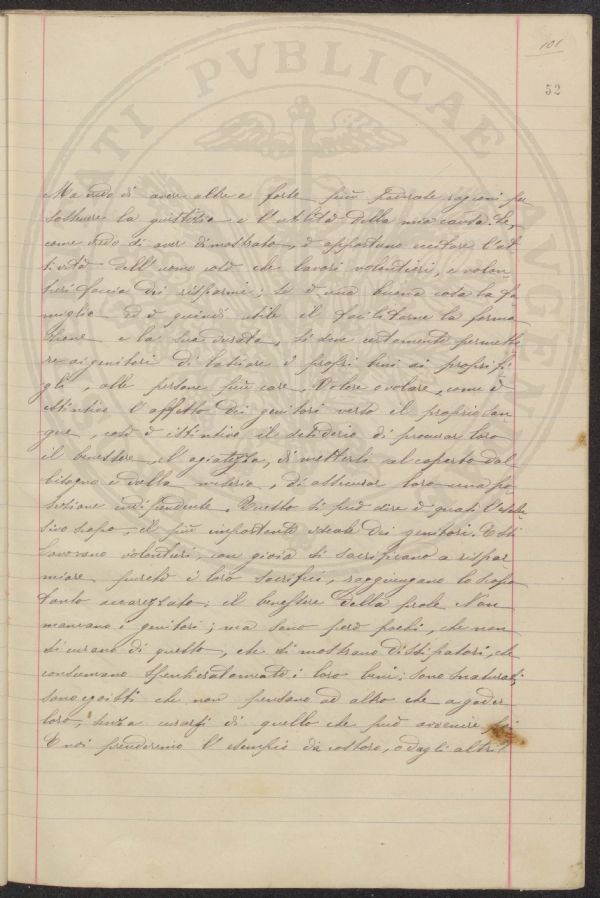 101
52
Ma credo di avere altre e forse più fondate ragioni per
sostenere la giustizia e l'utilità della mia causa. Se,
come credo di aver dimostrato, è opportuno eccitare l'at
tività dell'uomo così che lavori volentieri, e volen
tieri faccia dei risparmi; se è una buona cosa la fa
miglia ed è quindi utile il facilitarne la forma
zione e la sua durata, si deve certamente permette
re ai genitori di lasciare i propri beni ai propri fi
gli, alle persone più care. Volere o volare, come è
istintivo l'affetto dei genitori verso il proprio san
gue, così è istintivo il desiderio di procurar loro
il benessere, l'agiatezza, di metterli al coperto dal
bisogno e dalla miseria, di assicurar loro una po
sizione indipendente. Questo si può dire è quasi l'esclu
sivo scopo, il più importante ideale dei genitori. Essi
lavorano volentieri, con gioia si sacrificano a rispar
miare purchè i loro sacrifici, raggiungano lo scopo
tanto accarezzato: il benessere della prole. Non
mancano i genitori; ma sono però pochi, che non
si curano di questo, che si mostrano dissipatori, che
consumano spensieratamente i loro beni: sono snaturati,
sono egoisti che non pensano ad altro che a goder
loro, senza curarsi di quello che può avvenire poi.
E noi prenderemo l'esempio da costoro, o dagli altri?
STATI PVBLICAE AVGENDAE